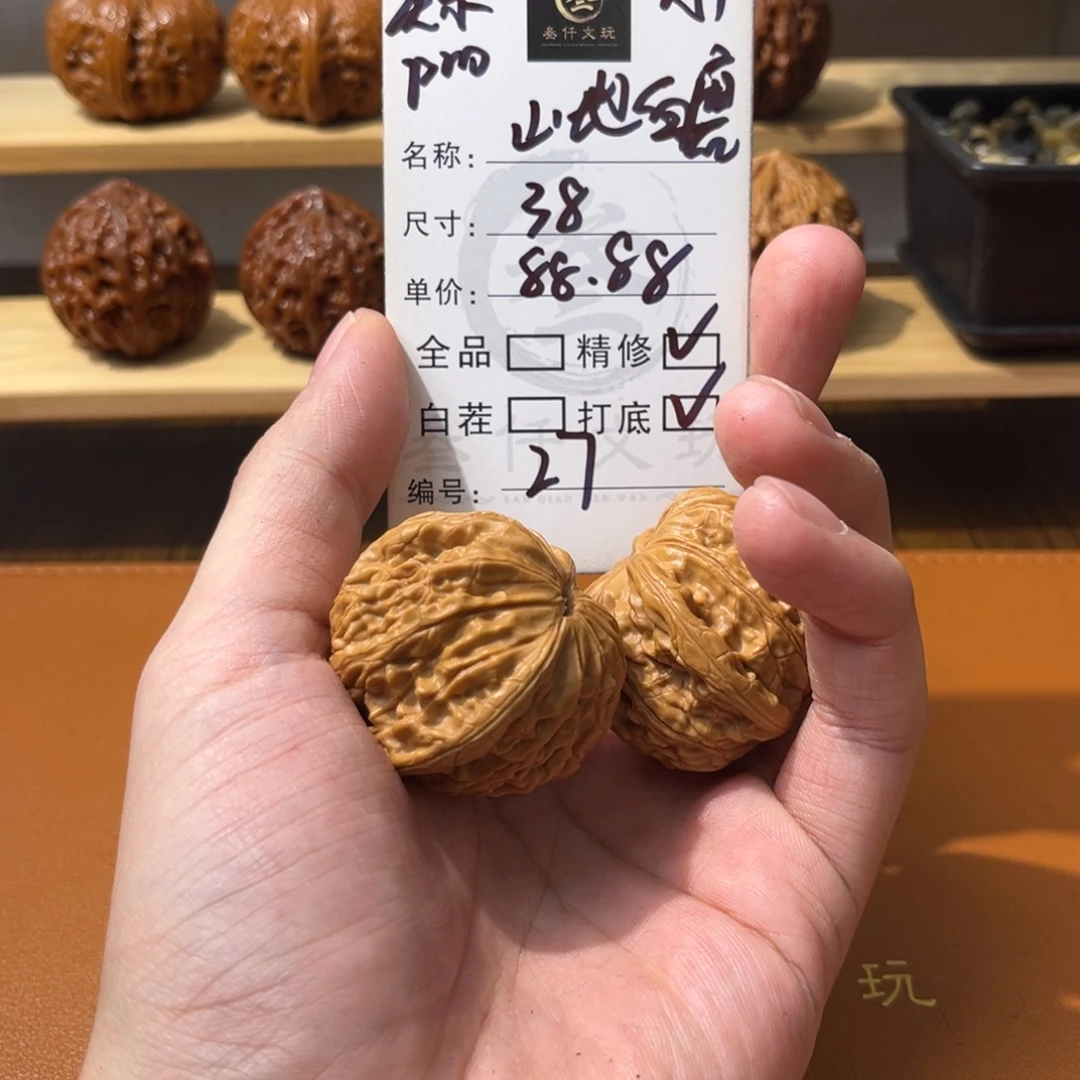 叁仟文玩
pm
名称: 山地红磨
尺寸: 38
单价: 88.88
全品 精修 ✓
白茬 打底 ✓
编号: 27
玩